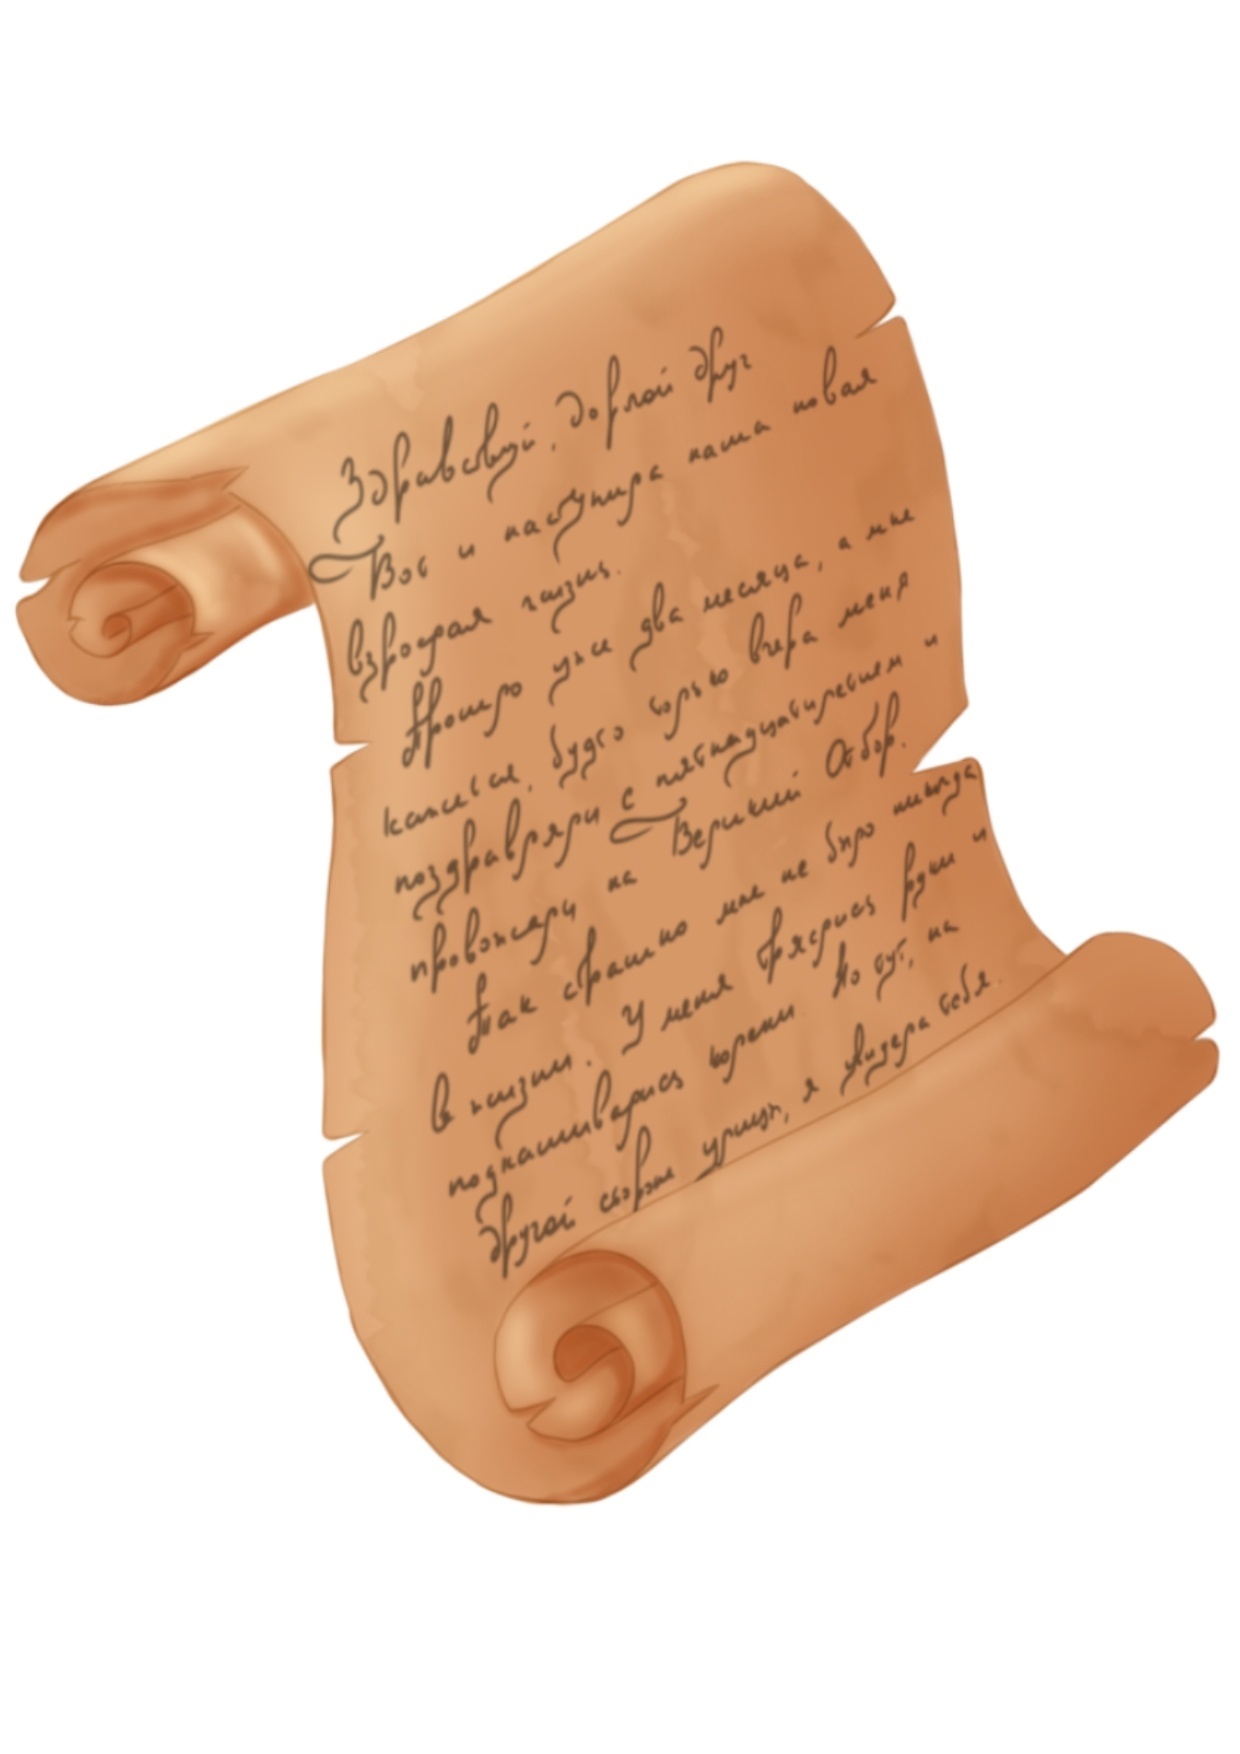 Здравствуй, дорогой друг
Вот и наступила наша новая
взрослая жизнь.
Прошло уже два месяца, а мне
кажется, будто только вчера меня
поздравляли с пятнадцатилетием и
провожали на Великий Отбор.
Так страшно мне не было никогда
в жизни. У меня тряслись руки и
подкашивались колени. Но тут, на
другой стороне улицы, я увидела тебя.